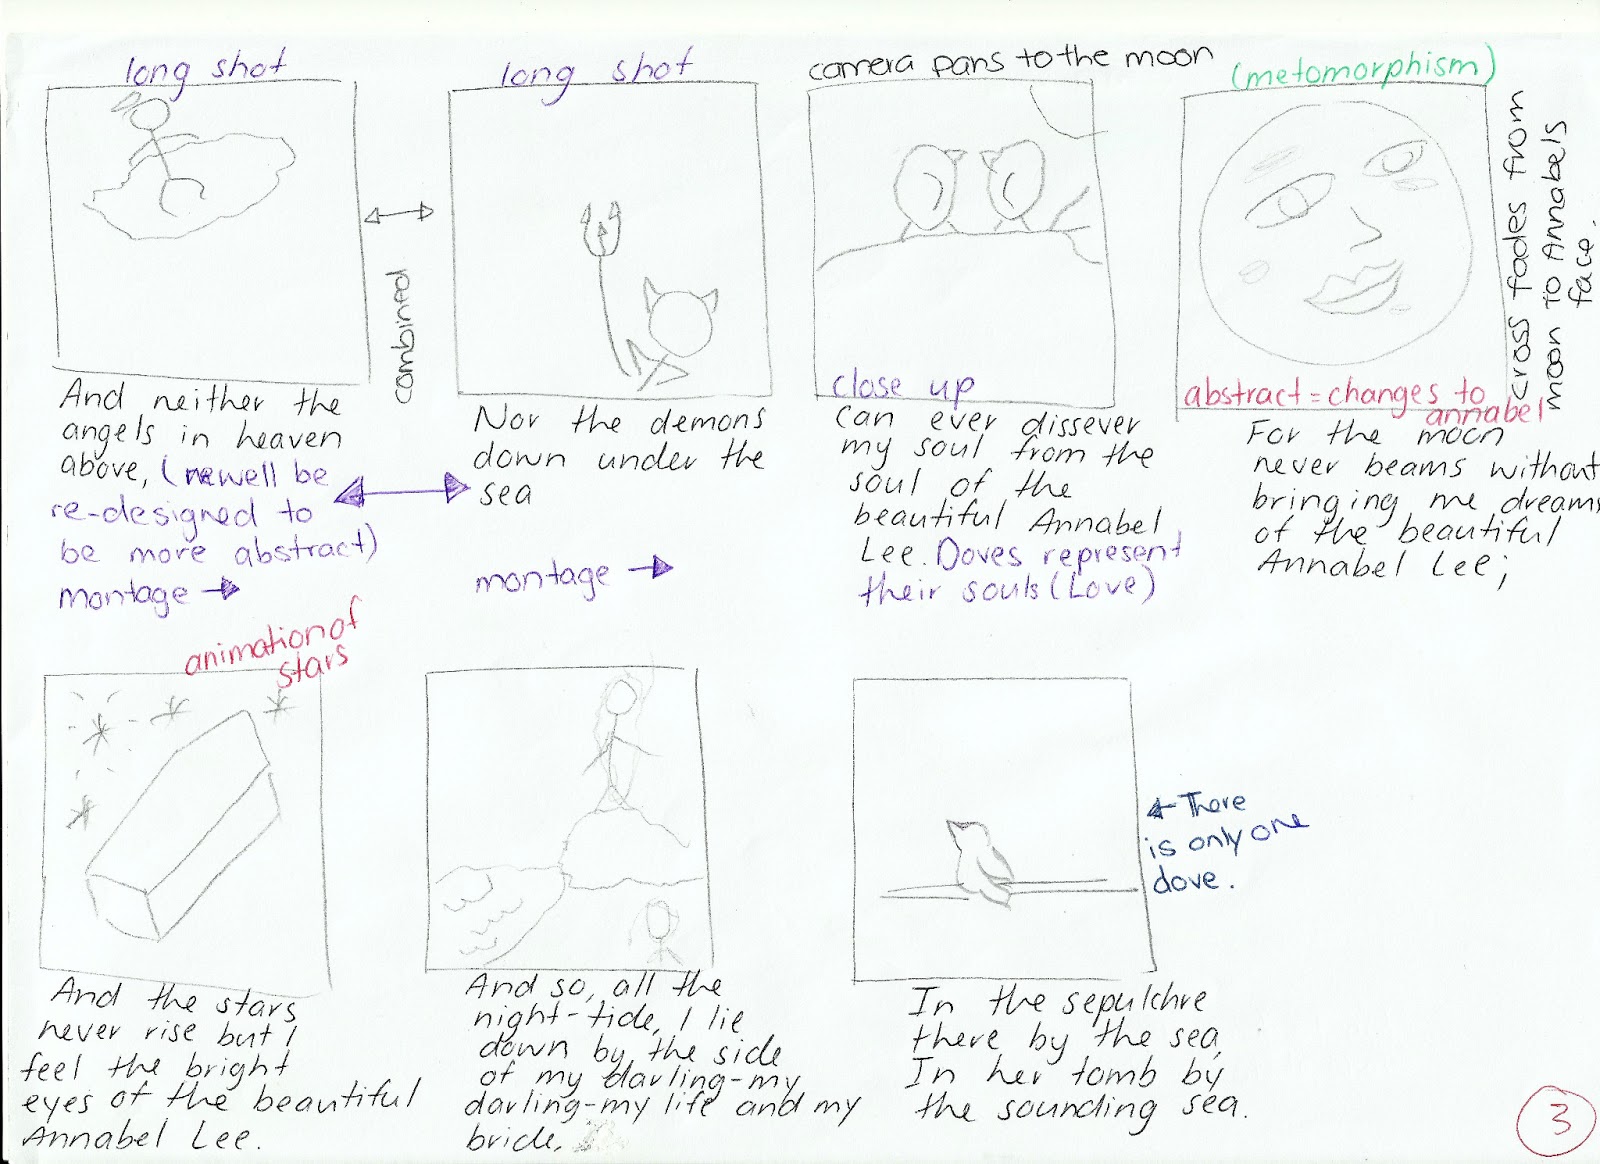 long shot
And neither the
angels in heaven
above, (newell be
re-designed to
be more abstract)
montage →
combined
long shot
Nor the demons
down under the
sea
montage →
camera pans to the moon
close up
can ever dissever
my soul from the
soul of the
beautiful Annabel
Lee. Doves represent
their souls (Love)
(metomorphism)
cross fades from
moon to Annabels
face.
abstract = changes to
annabel
For the moon
never beams without
bringing me dreams
of the beautiful
Annabel Lee;
animation of
stars
And the stars
never rise but I
feel the bright
eyes of the beautiful
Annabel Lee.
And so, all the
night-tide, I lie
down by the side
of my darling-my
darling-my life and my
bride,
← There
is only one
dove.
In the sepulchre
there by the sea,
In her tomb by
the sounding sea.
3